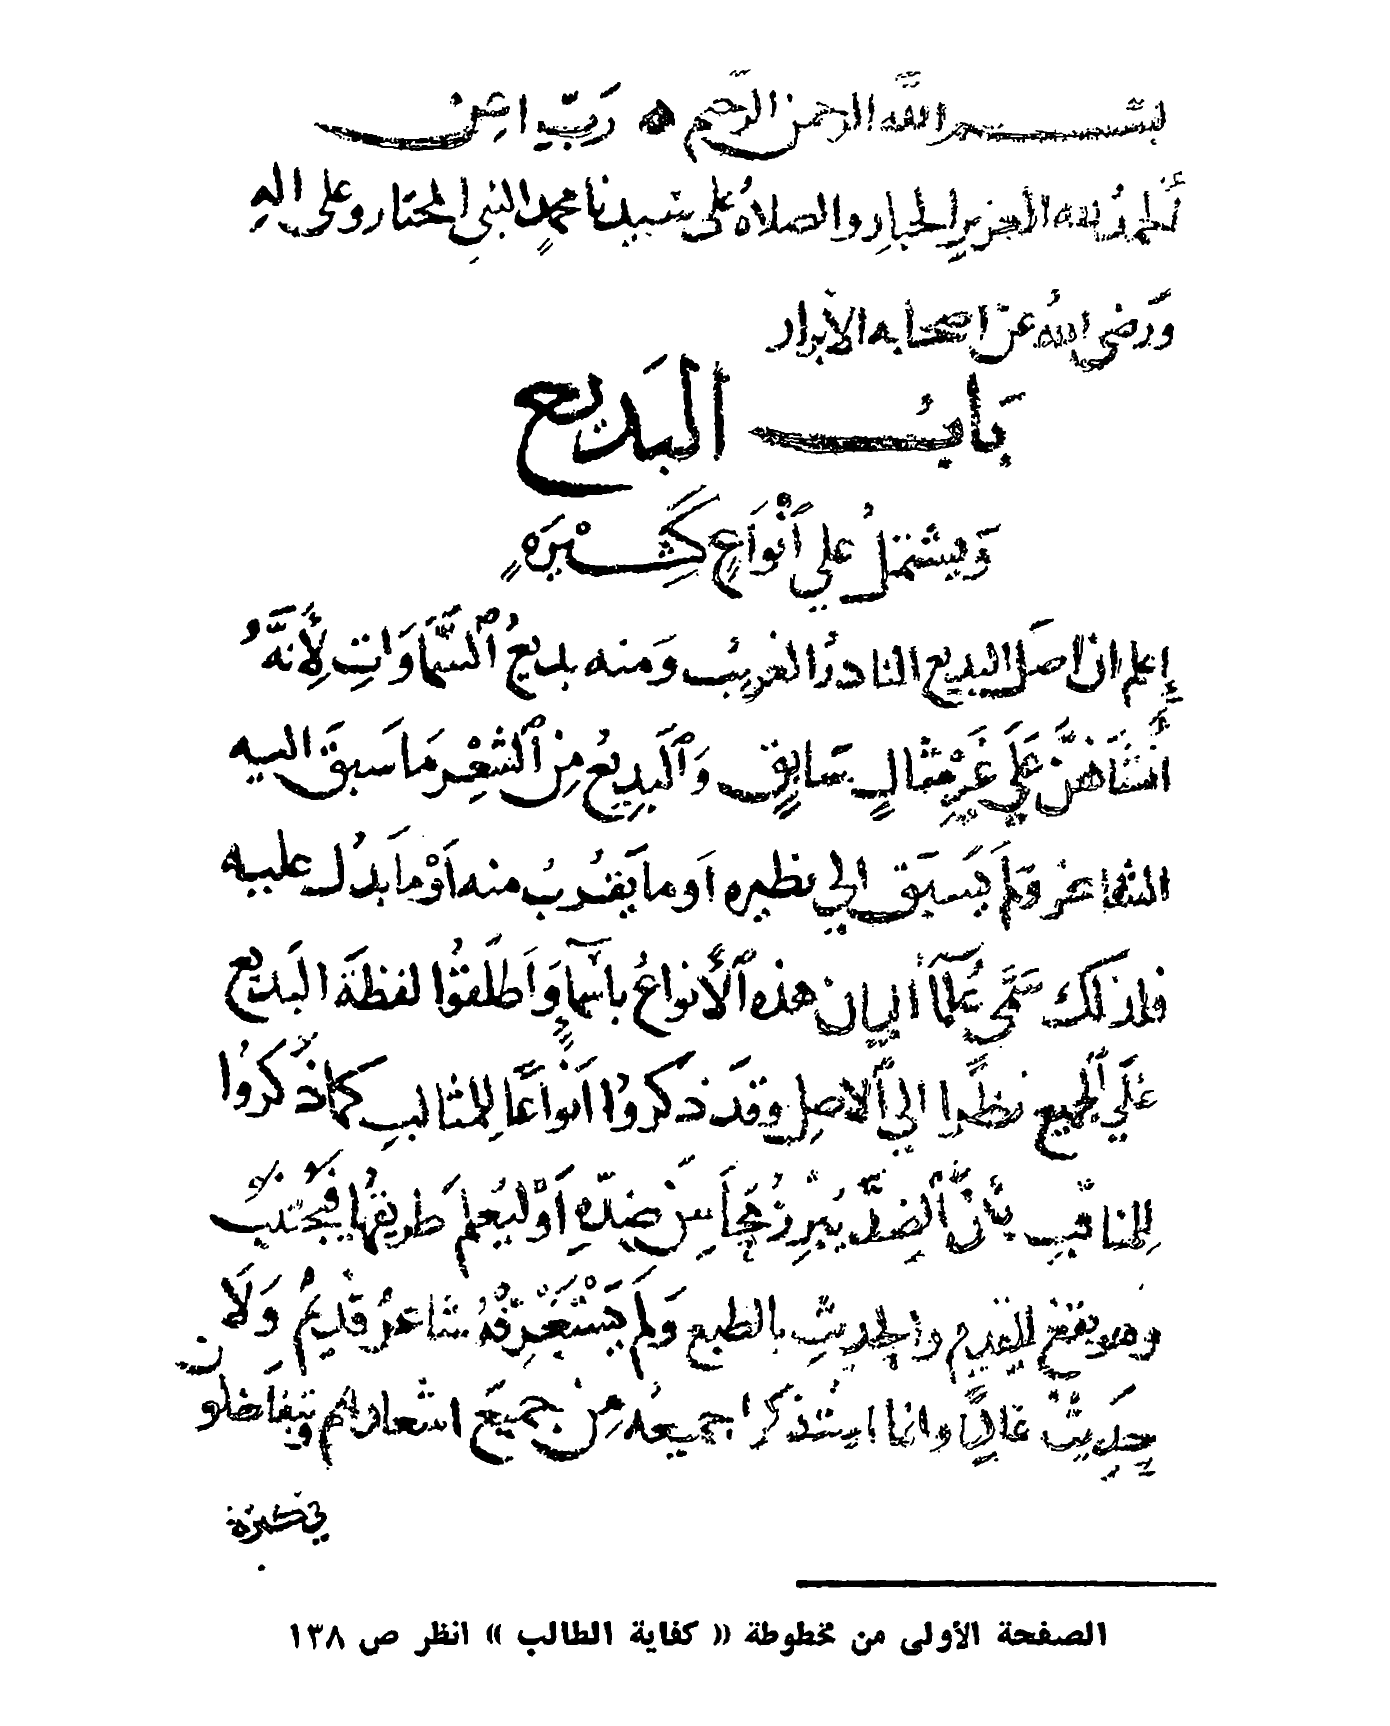 بسم الله الرحمن الرحيم ۞ رَبِّ اعِن
اَلحمدُ لله العزيزِ الجبارِ والصلاةُ على سَيدنا محمدٍ النبيِ المختار وعلى الهِ
وَرَضى اللهُ عَن اصحابه الأبرار
بَابُ البَديع
وَيشتملُ علي أنْواَعٍ كَثِيْرَهٍ
إعلم ان اصل البديع النادرُ الغريبُ وَمنه بديعُ ٱلسَّمَاوَاتِ لأَنَّهُ
أَنشَأَهنَّ عَلَي غَيْرِ مِثالٍ سَابِقٍ وَٱلبَدِيعُ مِنَ ٱلشعِْر مَا سَبَقَ اليه
الشاعر وَلَم يَسبَق الي نظيره اَو ما يَقرُبُ منه اَوْ مَا يَدُل عليه
فلذلك سَمَّى عُلَمَآءُ البيان هذه ٱلأَنواعُ بأَسمآءٍ وَاَطلَقوُا لفظةَ البَديع
عَلَي ٱلجميع نظَرا الي ٱلاصلِ وقَد ذكروُا اَنواَعًا لِلمثالبِ كما ذَكَروُا
لِلمناقبِ بأَنَّ ٱلضِدَّ يُبْرِزُ مَحَاسِنَ ضِدّهِ اَوْ ليُعلمَ طريقُها فَيُجْتَنَبَ
وهو يقع للقديم والحديثِ بالطبع وَلَم يَسْتَغْرِقْهُ شاعرُ قديمٌ وَلَا
حَدِيثٌ غالبًا وانما استذكرا جميعُه مِن جميَع اشعارهم ويتفاضلون
في كثرة
الصفحة الأولى من مخطوطة « كفاية الطالب » انظر ص ١٣٨